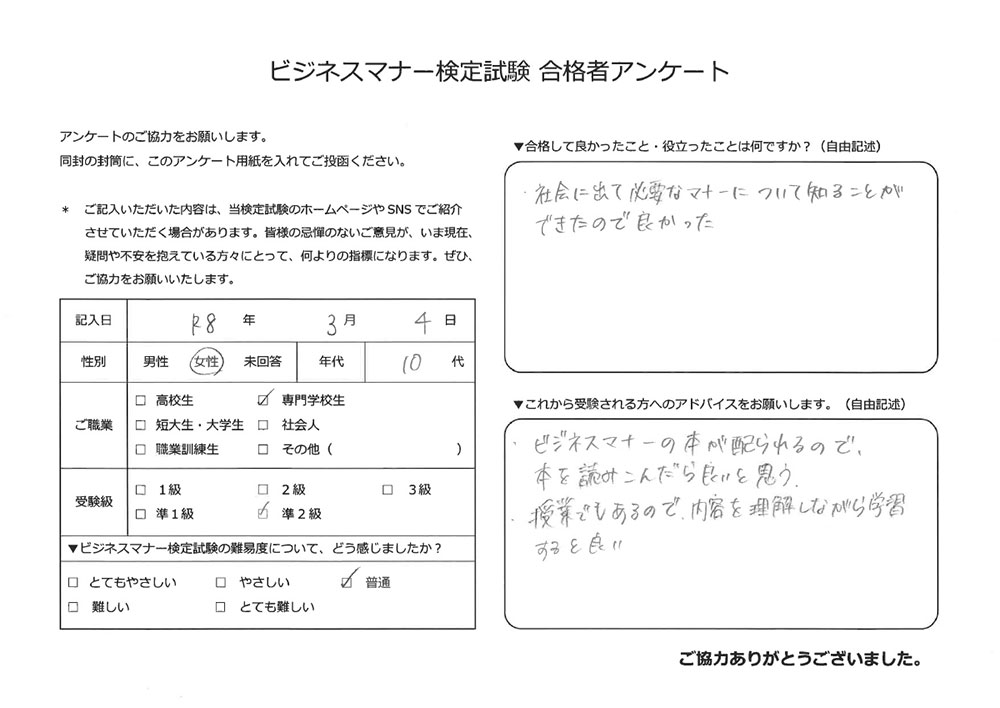 ビジネスマナー検定試験 合格者アンケート
アンケートのご協力をお願いします。
同封の封筒に、このアンケート用紙を入れてご投函ください。
＊ ご記入いただいた内容は、当検定試験のホームページや SNS でご紹介
させていただく場合があります。皆様の忌憚のないご意見が、いま現在、
疑問や不安を抱えている方々にとって、何よりの指標になります。ぜひ、
ご協力をお願いいたします。
記入日 R8 年 3 月 4 日
性別 男性 女性 未回答 年代 10 代
ご職業
□ 高校生 ☑ 専門学校生
□ 短大生・大学生 □ 社会人
□ 職業訓練生 □ その他（ ）
受験級
□ 1級 □ 2級 □ 3級
□ 準1級 ☑ 準2級
▼ビジネスマナー検定試験の難易度について、どう感じましたか？
□ とてもやさしい □ やさしい ☑ 普通
□ 難しい □ とても難しい
▼合格して良かったこと・役立ったことは何ですか？（自由記述）
・社会に出て必要なマナーについて知ることが
できたので良かった
▼これから受験される方へのアドバイスをお願いします。（自由記述）
・ビジネスマナーの本が配られるので、
本を読みこんだら良いと思う。
・授業でもあるので、内容を理解しながら学習
すると良い
ご協力ありがとうございました。